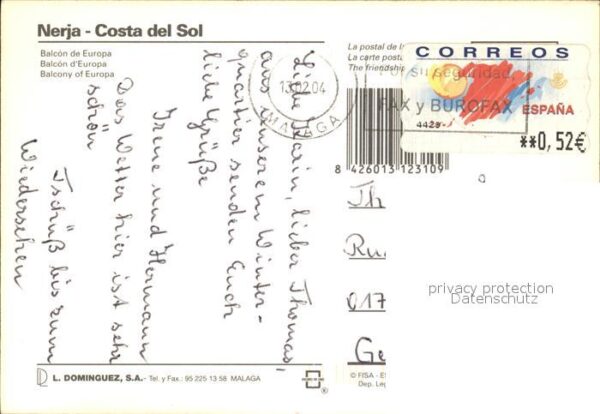 Nerja - Costa del Sol
Balcón de Europa
Balcón d'Europa
Balcony of Europa
Liebe Karin, lieber Thomas,
aus unserem Winter-
quartier senden Euch
liebe Grüße
Irene und Hermann
Das Wetter hier ist sehr
schön
Tschüß bis zum
Wiedersehen
La postal de la
La carte posta
The friendship
13 02 04
MALAGA
su seguridad,
FAX y BUROFAX
4429
CORREOS
ESPAÑA
**0,52€
8 426013 123109
Th
Ru
017
Ge
privacy protection
Datenschutz
L. DOMINGUEZ, S.A. - Tel. y Fax.: 95 225 13 58 MALAGA
© FISA - E
Dep. Leg.